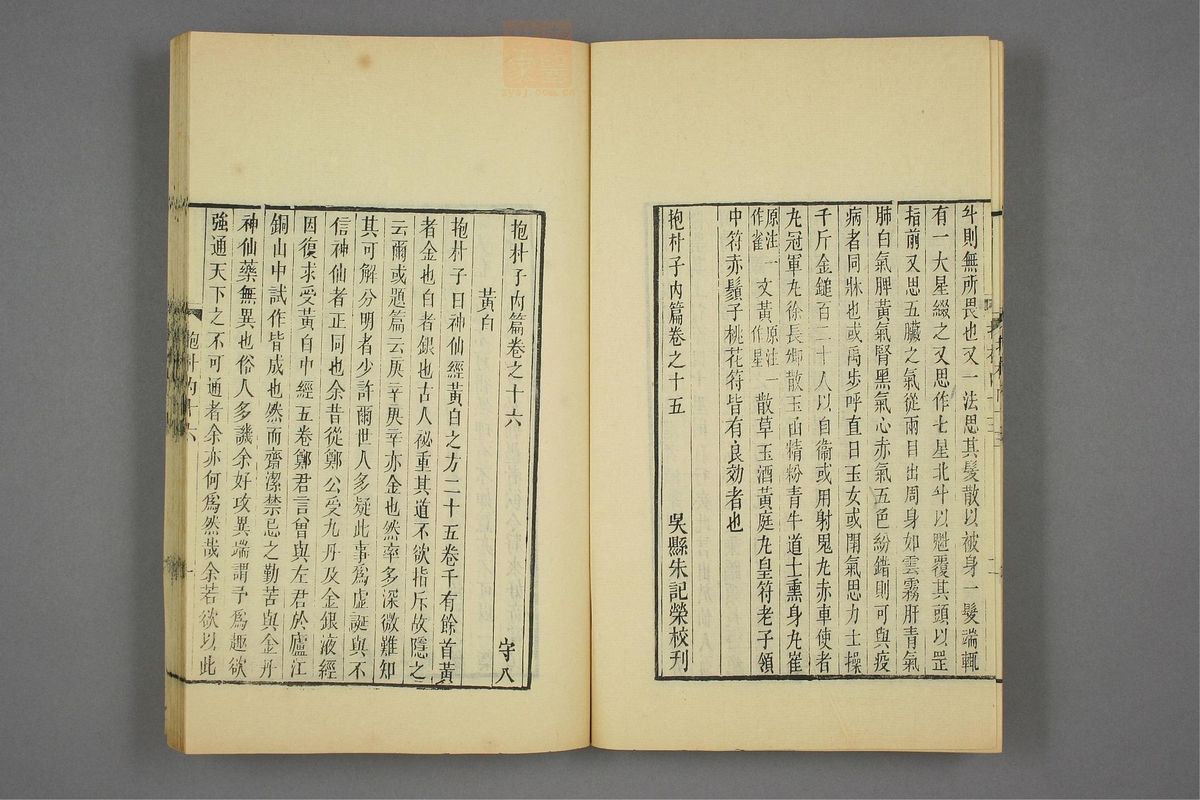 斗則無所畏也又一法思其髮散以被身一髮端輒
有一大星綴之又思作七星北斗以魁覆其頭以罡
指前又思五臟之氣從兩目出周身如雲霧肝青氣
肺白氣脾黃氣腎黑氣心赤氣五色紛錯則可與疫
病者同牀也或禹步呼直日玉女或閉氣思力士操
千斤金鎚百二十人以自衞或用射鬼丸赤車使者
丸冠軍丸徐長卿散玉函精粉青牛道士熏身丸崔
原注一作雀文黃原注一作星散草玉酒黃庭丸皇符老子領
中符赤鬚子桃花符皆有良効者也
抱朴子內篇卷之十五
吳縣朱記榮校刊
抱朴子內篇卷之十六
守八
黃白
抱朴子曰神仙經黃白之方二十五卷千有餘首黃
者金也白者銀也古人祕重其道不欲指斥故隱之
云爾或題篇云庚辛庚辛亦金也然率多深微難知
其可解分明者少許爾世人多疑此事爲虛誕與不
信神仙者正同也余昔從鄭公受九丹及金銀液經
因復求受黃白中經五卷鄭君言曾與左君於廬江
銅山中試作皆成也然而齋潔禁忌之勤苦與金丹
神仙藥無異也俗人多譏余好攻異端謂予爲趣欲
強通天下之不可通者余亦何爲然哉余若欲以此
抱朴內十六